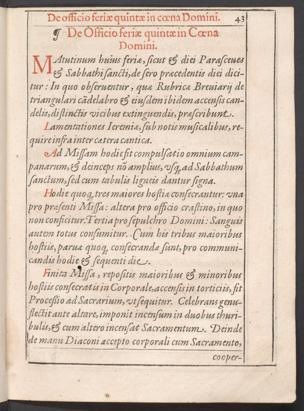 De officio feriæ quintæ in cœna Domini. 43
¶ De Officio feriæ quintæ in Cœna
Domini.
MAtutinum huius feriæ, sicut & diei Parasceues
& Sabbathi sancti, de sero præcedentis diei dici-
tur: In quo obseruentur, quæ Rubrica Breuiarij de
triangulari cãdelabro & eiusdem ibidem accensis can-
delis, distinctis vicibus extinguendis, præscribunt.
Lamentationes Ieremiæ, sub notis musicalibus, re-
quire infra inter cætera cantica.
Ad Missam hodie fit compulsatio omnium cam-
panarum, & deinceps nõ amplius, vsq; ad Sabbathum
sanctum, sed cum tabulis ligneis dantur signa.
Hodie quoq; tres maiores hostiæ consecrantur: vna
pro præsenti Missa: altera pro officio crastino, in quo
non conficitur. Tertia pro sepulchro Domini: Sanguis
autem totus consumitur. Cum his tribus maioribus
hostiis, paruæ quoq; consecrandæ sunt, pro communi-
candis hodie & sequenti die.
Finita Missa, repositis maioribus & minoribus
hostiis consecratis in Corporale, accensis in torticiis, fit
Processio ad Sacrarium, vt sequitur. Celebrans genu-
flectit ante altare, imponit incensum in duobus thuri-
bulis, & cum altero incensat Sacramentum. Deinde
de manu Diaconi accepto corporali cum Sacramento,
cooper-